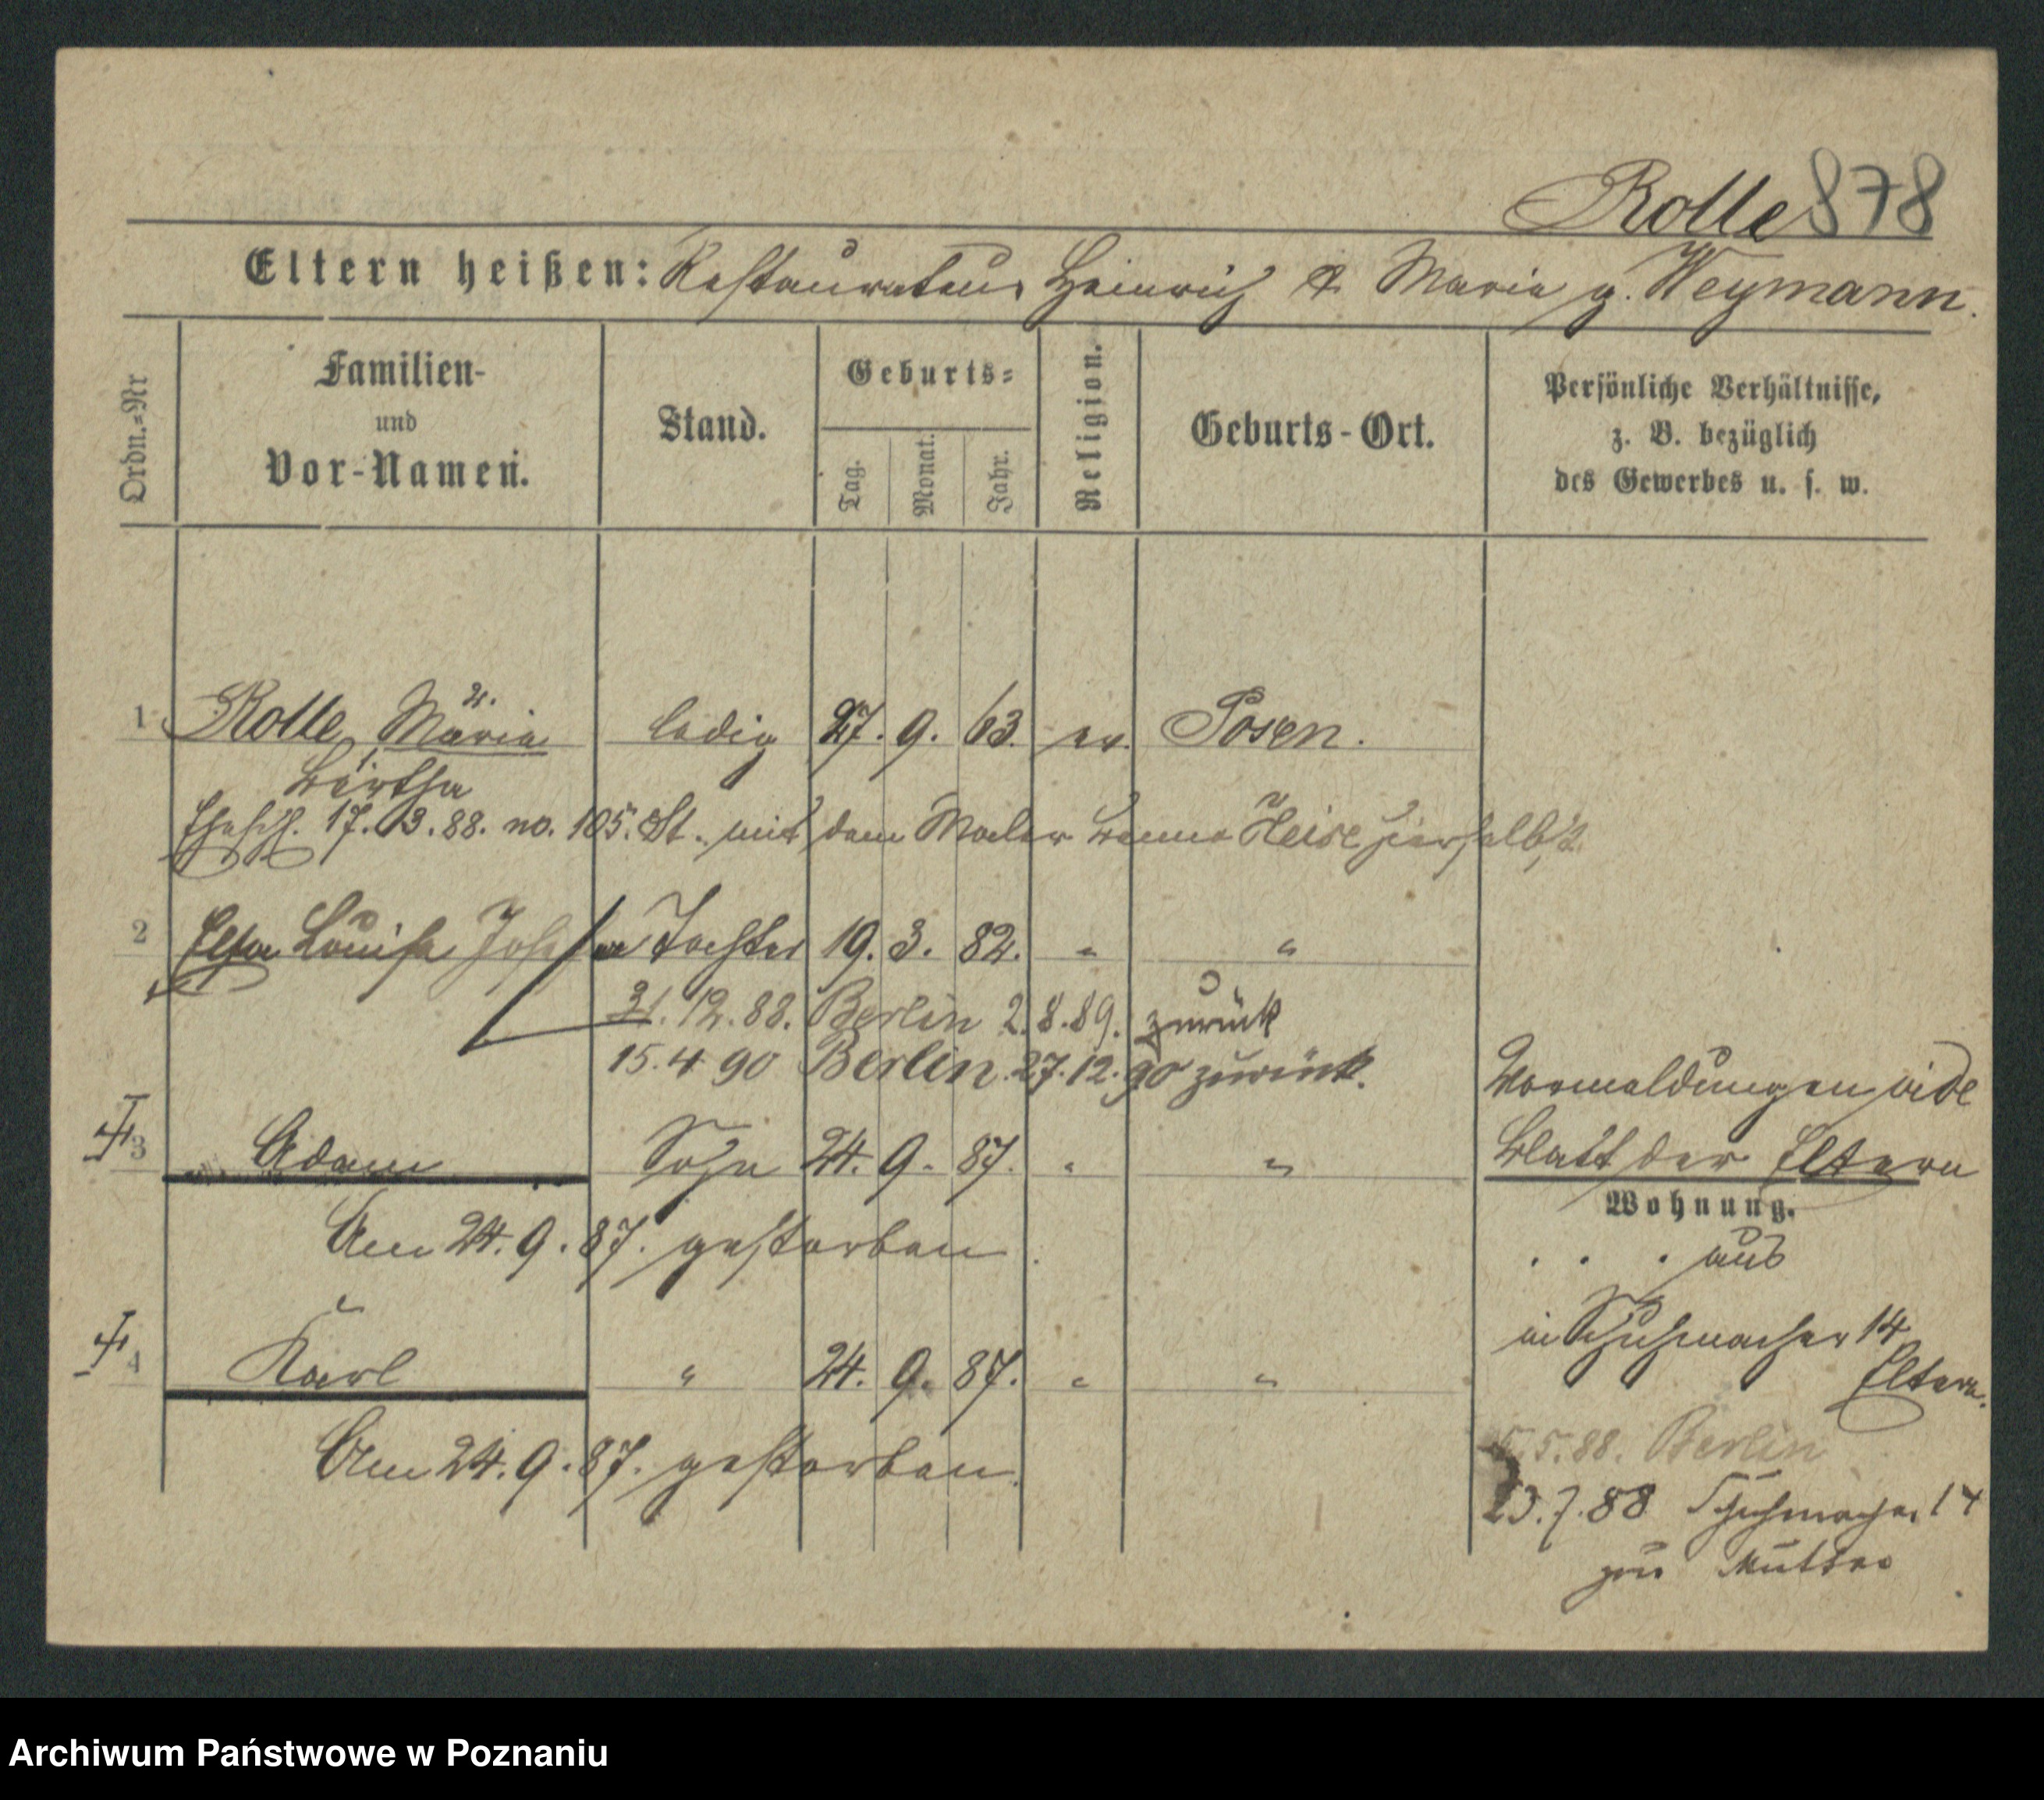 Rolle 878
Eltern heißen: Restaurateur Heinrich & Maria g. Weymann.
Ordn.=Nr
Familien-
und
Vor-Namen.
Stand.
Geburts=
Tag.
Monat.
Jahr.
Religion.
Geburts-Ort.
Persönliche Verhältnisse,
z. B. bezüglich
des Gewerbes u. s. w.
1 Rolle, Maria ledig 27. 9. 63. ev. Posen.
Bertha
Ehesch. 17. 3. 88. no. 105. St. mit dem Maler Benno Heise hierselbst
2 Elsa Louise Tochter 19. 3. 82. " "
31. 12. 88. Berlin 2. 8. 89. zurück
15. 4 90 Berlin 27. 12. 90 zurück.
Vormeldungen vide
Blatt der Eltern
3 Adam Sohn 24. 9. 87. " "
Wohnung.
Am 24. 9. 87. gestorben
. . . aus
in Schuhmacher 14
Eltern.
4 Karl " 24. 9. 87. " "
5.88. Berlin
Am 24. 9. 87. gestorben.
23. 7. 88 Schuhmacher 14
zur Mutter
Archiwum Państwowe w Poznaniu